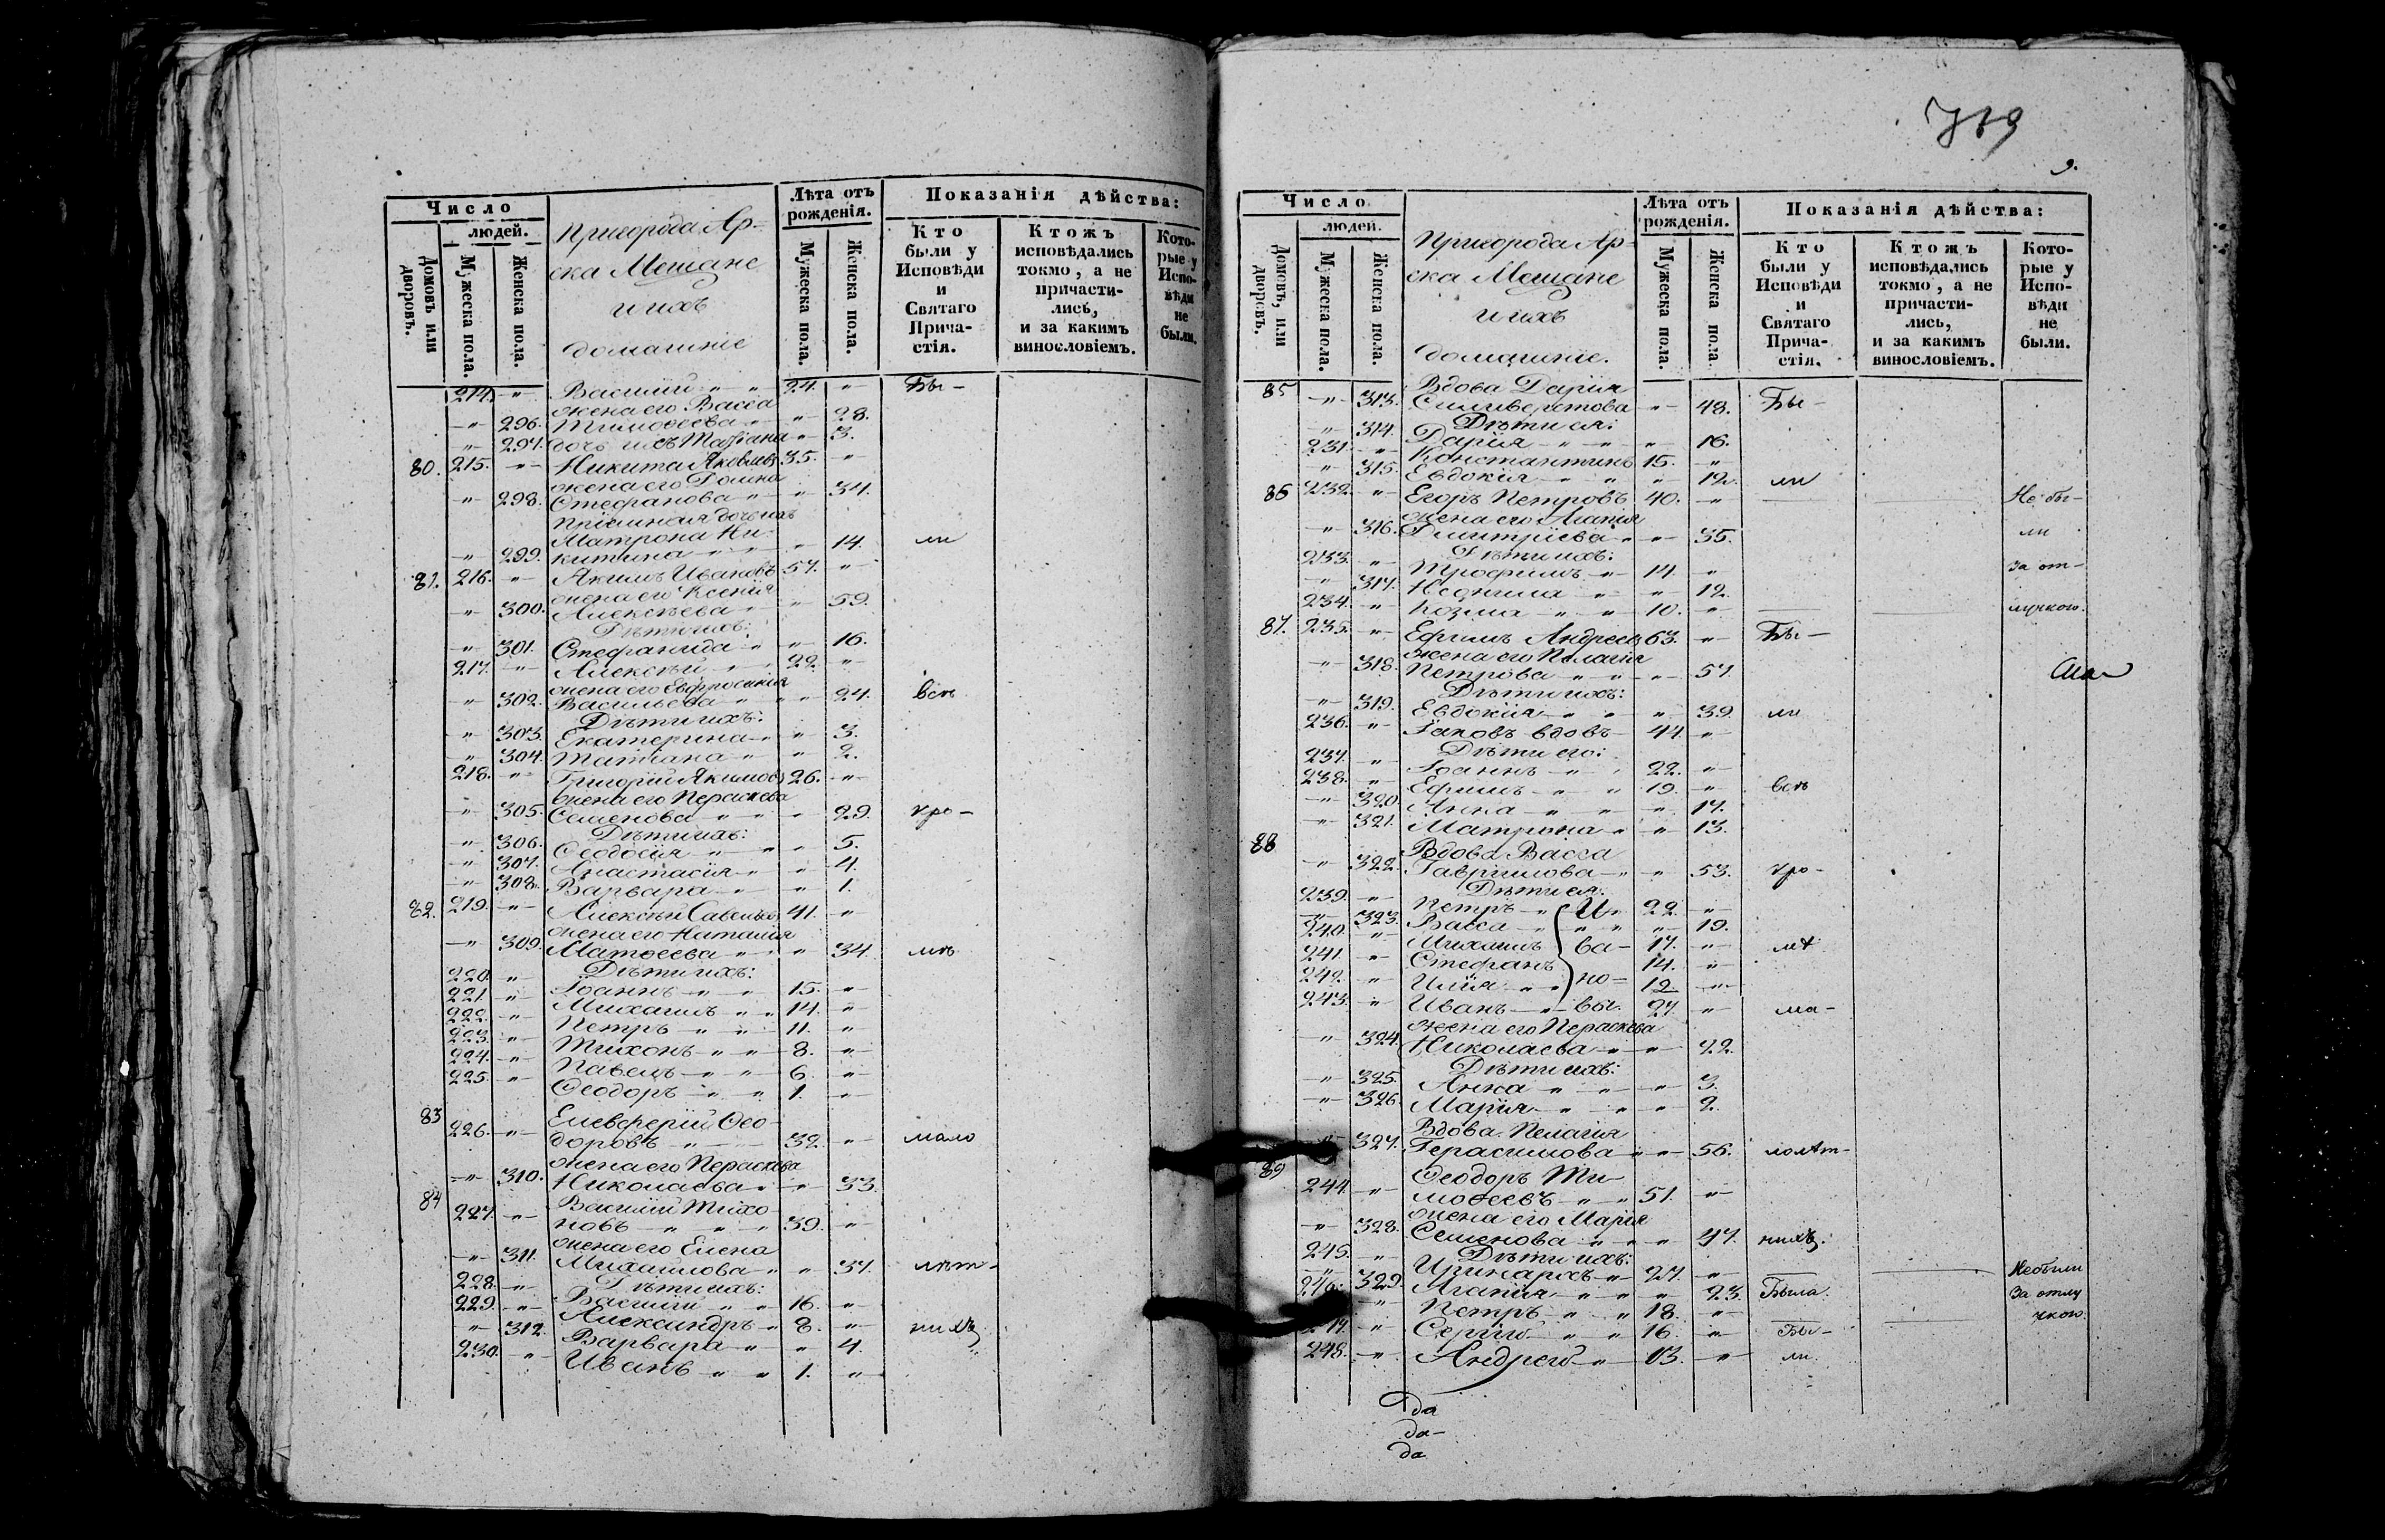 Число
людей.
Домовъ или дворовъ.
Мужеска пола.
Женска пола.
Пригорода Ар-
ска Мещане
и ихъ
домашніе
Лѣта отъ рожденія.
Мужеска пола.
Женска пола.
Показанія дѣйства:
Кто были у Исповѣди и Святаго Прича-стія.
Ктожъ исповѣдались токмо, а не причасти-лись, и за какимъ винословіемъ.
Кото-рые у Испо-вѣди не были.
214. -"- Василій " " 24. " Бы-
жена его Васса
" 296. Тимоѳеева " " 28.
" 297. дочь ихъ Татіана " 3.
80. 215. " Никита Яковлевъ 35. "
жена его Домна
" 298. Стефанова " " 34.
Пріемная дочь ихъ
Матрона Ни-
" 299. китина " " 14. ли
81. 216. " Акимъ Ивановъ 57. "
жена его Ксенія
" 300. Алексѣева " " 59.
Дѣти ихъ:
" 301. Стефанида " " 16.
217. " Алексѣй " " 22. "
жена его Евфросинія
" 302. Васильева " " 24. всѣ
Дѣти ихъ:
" 303. Екатерина " " 3.
" 304. Татіана " " 2.
218. " Григорій Якимовъ 26. "
жена его Параскева
" 305. Семенова " " 29. кро-
Дѣти ихъ:
" 306. Ѳеодосія " " 5.
" 307. Анастасія " " 4.
" 308. Варвара " " 1.
82. 219. " Алексѣй Савельевъ 41. "
жена его Наталія
" 309. Матѳеева " " 34. мѣ
Дѣти ихъ:
220. " Іоаннъ " " 15. "
221. " Михаилъ " " 14. "
222. " Петръ " " 11. "
223. " Тихонъ " " 8. "
224. " Павелъ " " 6. "
225. " Ѳеодоръ " " 1. "
83
Елевферій Ѳео-
226. " доровъ " " 32. " мало
жена его Параскева
" 310. Николаева " " 33.
84 Василій Тихо-
227. " новъ " " " 39. "
жена его Елена
" 311. Михаилова " " 37. лѣт-
Дѣти ихъ:
228. " Василій " " 16. "
229. " Александръ " 8. " нихъ
" 312. Варвара " " 4.
230. " Иванъ " " 1. "
719
9.
Число
людей.
Домовъ, или дворовъ.
Мужеска пола.
Женска пола.
Пригорода Ар-
ска Мещане
и ихъ
домашніе.
Лѣта отъ рожденія.
Мужеска пола.
Женска пола.
Показанія дѣйства:
Кто были у Исповѣди и Святаго Прича-стія.
Ктожъ исповѣдались токмо, а не причасти-лись, и за какимъ винословіемъ.
Кото-рые у Испо-вѣди не были.
85 Вдова Дарія
" 313. Силиверстова " 48. Бы-
Дѣти ея:
" 314. Дарія " " " 16.
231. " Константинъ 15. "
" 315. Евдокія " " " 12. ли
86 232. " Егоръ Петровъ 40. " Не бы-
жена его Агапія
" 316. Дмитріева " " 35. ли
Дѣти ихъ:
233. " Трофимъ " 14. " За от-
" 317. Неонила " " 12.
234. " Козма " " 10. " лучкою.
87. 235. " Ефимъ Андреевъ 63. " Бы-
жена его Пелагія
" 318. Петрова " " " 57.
Дѣти ихъ:
" 319. Евдокія " " " 39. ли
236. " Іаковъ вдовъ 44. "
Дѣти его:
237. " Іоаннъ " " 22. "
238. " Ефимъ " " 19. " всѣ
" 320. Анна " " " 17.
" 321. Матрона " " 13.
88 Вдова Васса
" 322. Гаврилова " " 53. кро-
Дѣти ея:
239. " Петръ " И- 22. "
" 323. Васса " " " 19.
240. " Михаилъ ва- 17. " мѣ
241. " Стефанъ 14. "
242. " Илія " " но- 12. "
243. " Иванъ " вы. 27. " ма-
жена его Параскева
" 324. Николаева " " 22.
Дѣти ихъ:
" 325. Анна " " " 3.
" 326. Марія " " " 2.
Вдова Пелагія
" 327. Герасимова " " 56. лолѣт-
89 Ѳеодоръ Ти-
244. " моѳеевъ " " 51. "
жена его Марія
" 328. Семенова " " " 47. нихъ.
Дѣти ихъ:
245. " Иринархъ " 27. " Небыли
" 329. Агапія " " " 23. Была. За отлу
246. " Петръ " " 18. " чкою.
247. " Сергій " " 16. " Бы-
248. " Андрей " 13. " ли.
да
да-
да